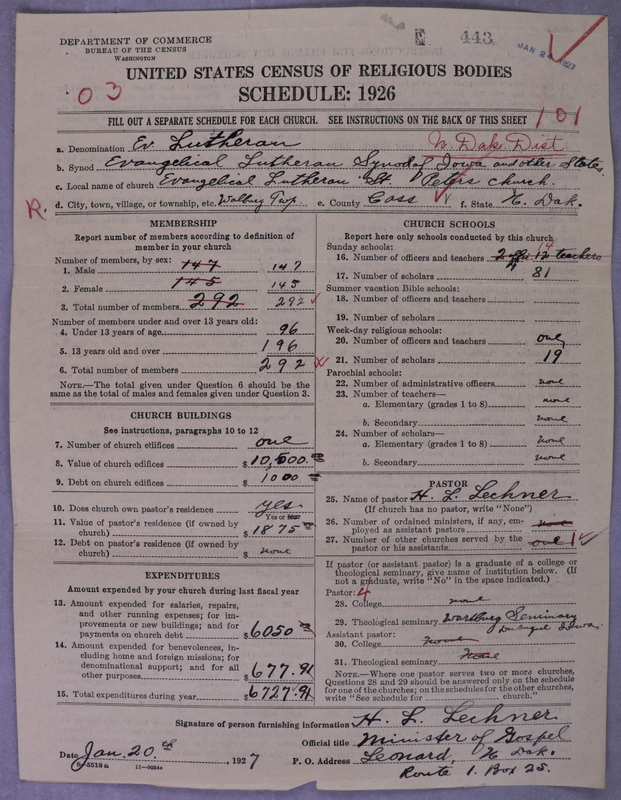 DEPARTMENT OF COMMERCE
BUREAU OF THE CENSUS
WASHINGTON
E 443
JAN 2 1927
UNITED STATES CENSUS OF RELIGIOUS BODIES
SCHEDULE: 1926
03
FILL OUT A SEPARATE SCHEDULE FOR EACH CHURCH. SEE INSTRUCTIONS ON THE BACK OF THIS SHEET
101
a. Denomination Ev. Lutheran
N. Dak. Dist
b. Synod Evangelical Lutheran Synod of Iowa and other States.
c. Local name of church Evangelical Lutheran St. Peters church.
R. d. City, town, village, or township, etc. Walburg Twp. e. County Cass f. State N. Dak.
MEMBERSHIP
Report number of members according to definition of member in your church
Number of members, by sex:
1. Male 147 147
2. Female 145 145
3. Total number of members 292 292
Number of members under and over 13 years old:
4. Under 13 years of age 96
5. 13 years old and over 196
6. Total number of members 292
NOTE.—The total given under Question 6 should be the same as the total of males and females given under Question 3.
CHURCH BUILDINGS
See instructions, paragraphs 10 to 12
7. Number of church edifices one
8. Value of church edifices $10,500.
9. Debt on church edifices $1000
10. Does church own pastor's residence yes.
Yes or No
11. Value of pastor's residence (if owned by church) $1875
12. Debt on pastor's residence (if owned by church) $none
EXPENDITURES
Amount expended by your church during last fiscal year
13. Amount expended for salaries, repairs, and other running expenses; for improvements or new buildings; and for payments on church debt $6050
14. Amount expended for benevolences, including home and foreign missions; for denominational support; and for all other purposes $677.91
15. Total expenditures during year $6727.91
CHURCH SCHOOLS
Report here only schools conducted by this church
Sunday schools:
16. Number of officers and teachers 2 off. 12 teachers 14
17. Number of scholars 81
Summer vacation Bible schools:
18. Number of officers and teachers
19. Number of scholars
Week-day religious schools:
20. Number of officers and teachers one
21. Number of scholars 19
Parochial schools:
22. Number of administrative officers none
23. Number of teachers—
a. Elementary (grades 1 to 8) none
b. Secondary none
24. Number of scholars—
a. Elementary (grades 1 to 8) none
b. Secondary none
PASTOR
25. Name of pastor H. L. Lechner
(If church has no pastor, write "None")
26. Number of ordained ministers, if any, employed as assistant pastors none
27. Number of other churches served by the pastor or his assistants one 1
If pastor (or assistant pastor) is a graduate of a college or theological seminary, give name of institution below. (If not a graduate, write "No" in the space indicated.)
Pastor: 4
28. College none
29. Theological seminary Wartburg Seminary Dubuque Iowa.
Assistant pastor:
30. College None
31. Theological seminary None
NOTE.—Where one pastor serves two or more churches, Questions 28 and 29 should be answered only on the schedule for one of the churches; on the schedules for the other churches, write "See schedule for church."
Signature of person furnishing information H. L. Lechner
Official title Minister of Gospel
Date Jan. 20th, 1927 P. O. Address Leonard, N. Dak.
Route 1. Box 25.
8-5518a 11-9064